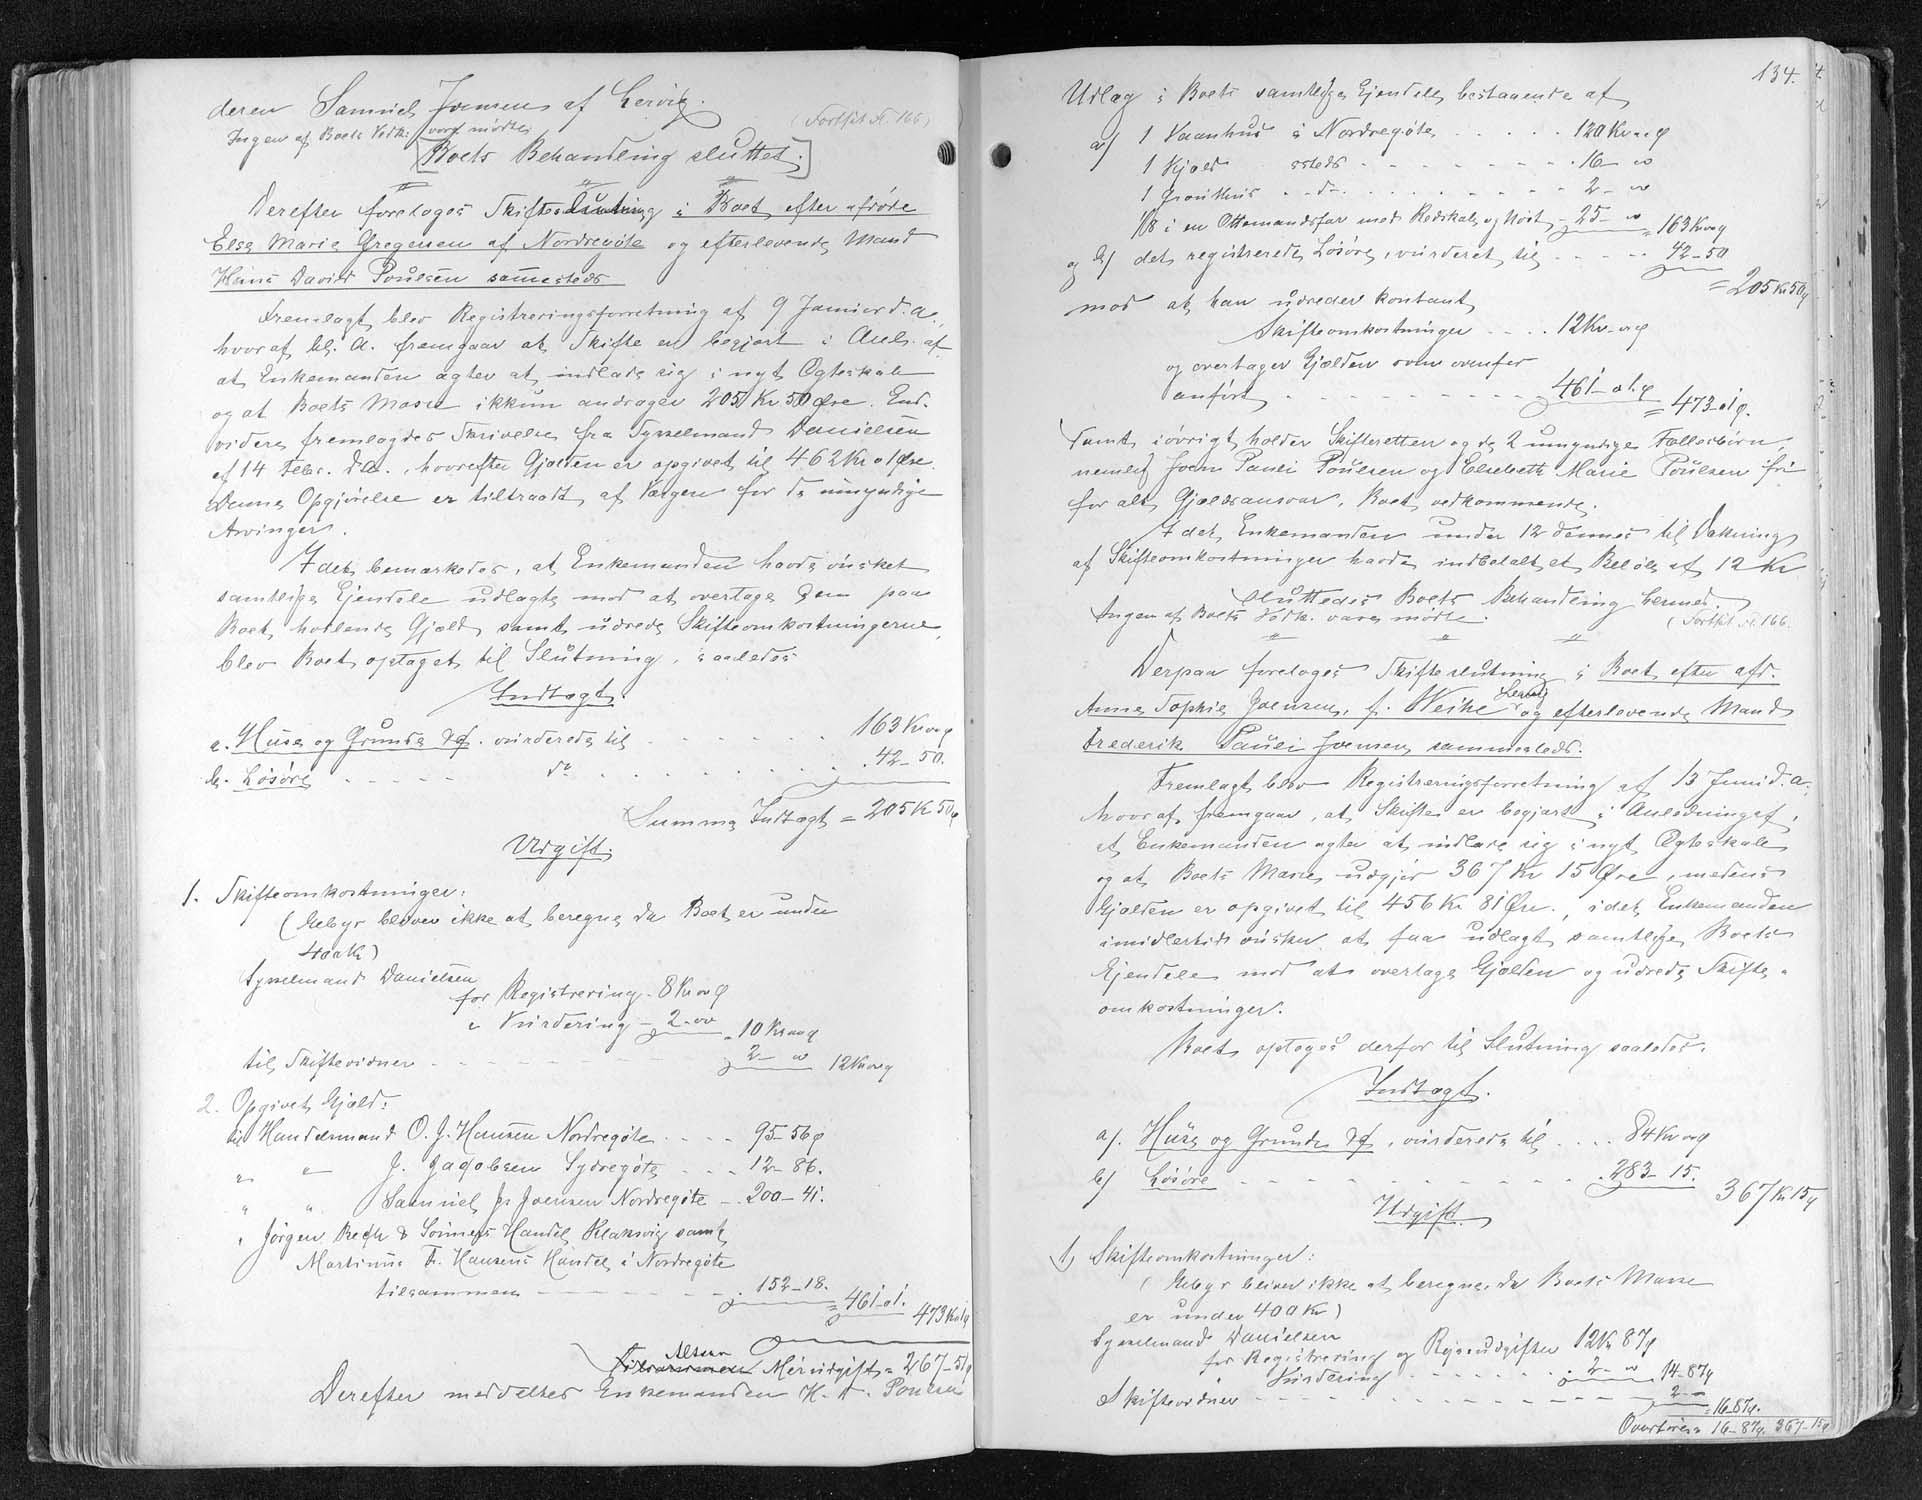 deren Samuel Joensen af Lervig.
(Fortsat N. 166)
Ingen af Boets Vedk. vare mødte.
[Boets Behandling sluttet.]
Derefter foretoges Skifteslutning i Boet efter afdøde
Else Marie Gregersen af Nordregøte og efterlevende Mand
Hans David Poulsen sammesteds
Fremlagt blev Registreringsforretning af 9 Januar d. A.
hvoraf bl. A. fremgaar at Skifte er begjært i Anl. af
at Enkemanden agter at indlade sig i nyt Ægteskab
og at Boets Masse ikkun andrager 205 Kr. 50 Øre. End-
videre fremlagdes Skrivelse fra Sysselmand Danielsen
af 14 Febr. d.A., hvorefter Gjælden er opgivet til 462 Kr 01 Øre.
Denne Opgjørelse er tiltraadt af Værgen for de umyndige
Arvinger.
Idet bemærkedes, at Enkemanden havde ønsket
samtlige Ejendele udlagte mod at overtage den paa
Boet hvilende Gjæld samt udrede Skifteomkostningerne,
blev Boet optaget til Slutning, saaledes
Indtægt.
a. Huse og Grunde &c. vurderede til . . . . . 163 Kr oo ø
b. Løsøre . . . . . do . . . . . 42 - 50.
Summa Indtægt = 205 Kr 50 ø
Udgift.
1. Skifteomkostninger:
(Gebyr bliver ikke at beregne da Boet er under
400 Kr)
Sysselmand Danielsen
for Registrering - 8 Kr oo ø
" Vurdering - 2 - oo = 10 Kr oo ø
til Skiftevidner - - - - - 2 - oo 12 Kr oo ø
2. Opgivet Gjæld:
til Handelsmand O. J. Hansen Nordregøte . . . . 95 - 56 ø
" " J. Jacobsen Sydregøte . . . 12 - 86.
" " Samuel Js Joensen Nordregøte - . 200 - 41.
" Jørgen Bech & Sønners Handel Klaksvig samt
Martinus Fr. Hansens Handel i Nordregøte
tilsammen - - - - - - . 152 - 18. = 461 - 01. 473 Kr 01 ø
Altsaa Merudgift = 267 - 51 ø
Derefter meddeltes Enkemanden H. D. Poulsen
134.
Udlæg i Boets samtlige Ejendele bestaaende af
a) 1 Vaanhus i Nordregøte . . . . . 120 Kr oo ø
1 Kjæld ssteds - - - - - - - 16 - oo
1 Grønthus - do - . . . . . . 2 - oo
1/8 i en Ottemandsfar med Redskab og Nøst - 25 - oo = 163 Kr oo ø
og b) det registrerede Løsøre, vurderet til - - - - 42 - 50
= 205 Kr 50 ø
mod at han udreder kontant
Skifteomkostninger - - . . 12 Kr - oo ø
og overtager Gjælden som ovenfor
anført - - - - - - - - 461 - 01 ø = 473 - 01 ø.
samt iøvrigt holder Skifteretten og de 2 umyndige Fællesbørn
nemlig Joen Pauli Poulsen og Elsebeth Marie Poulsen fri
for alt Gjældsansvar, Boet vedkommende.
Idet Enkemanden under 12 dennes til Dækning
af Skifteomkostninger havde indbetalt et Beløb af 12 Kr
sluttedes Boets Behandling hermed.
Ingen af Boets Vedk. vare mødte.
(Fortsat N. 166.
Derpaa foretoges Skifteslutning i Boet efter afd.
Anne Sophie Joensen, f. Weihe Lervig og efterlevende Mand
Frederik Pauli Joensen sammesteds.
Fremlagt blev Registreringsforretning af 13 Juni d. A.
hvoraf fremgaar, at Skifte er begjært i Anledning af,
at Enkemanden agter at indlade sig i nyt Ægteskab
og at Boets Masse udgjør 367 Kr 15 Øre, medens
Gjælden er opgivet til 456 Kr 81 Øre., idet Enkemanden
imidlertid ønsker at faa udlagt samtlige Boets
Ejendele mod at overtage Gjælden og udrede Skifte-
omkostninger.
Boet optoges derfor til Slutning saaledes.
Indtægt.
a). Huse og Grunde &c, vurderede til . . . . 84 Kr oo ø
b) Løsøre - - - - - - - . 283 - 15. 367 Kr 15 ø
Udgift.
1, Skifteomkostninger:
(Gebyr bliver ikke at beregne, da Boets Masse
er under 400 Kr)
Sysselmand Danielsen
for Registrering og Rejseudgifter 12 Kr 87 ø
" Vurdering - - - - - . 2 - oo 14 - 87 ø
Skiftevidner - - - - - - - 2 - oo = 16 - 87 ø.
Overføres 16 - 87 ø. 367 - 15 ø